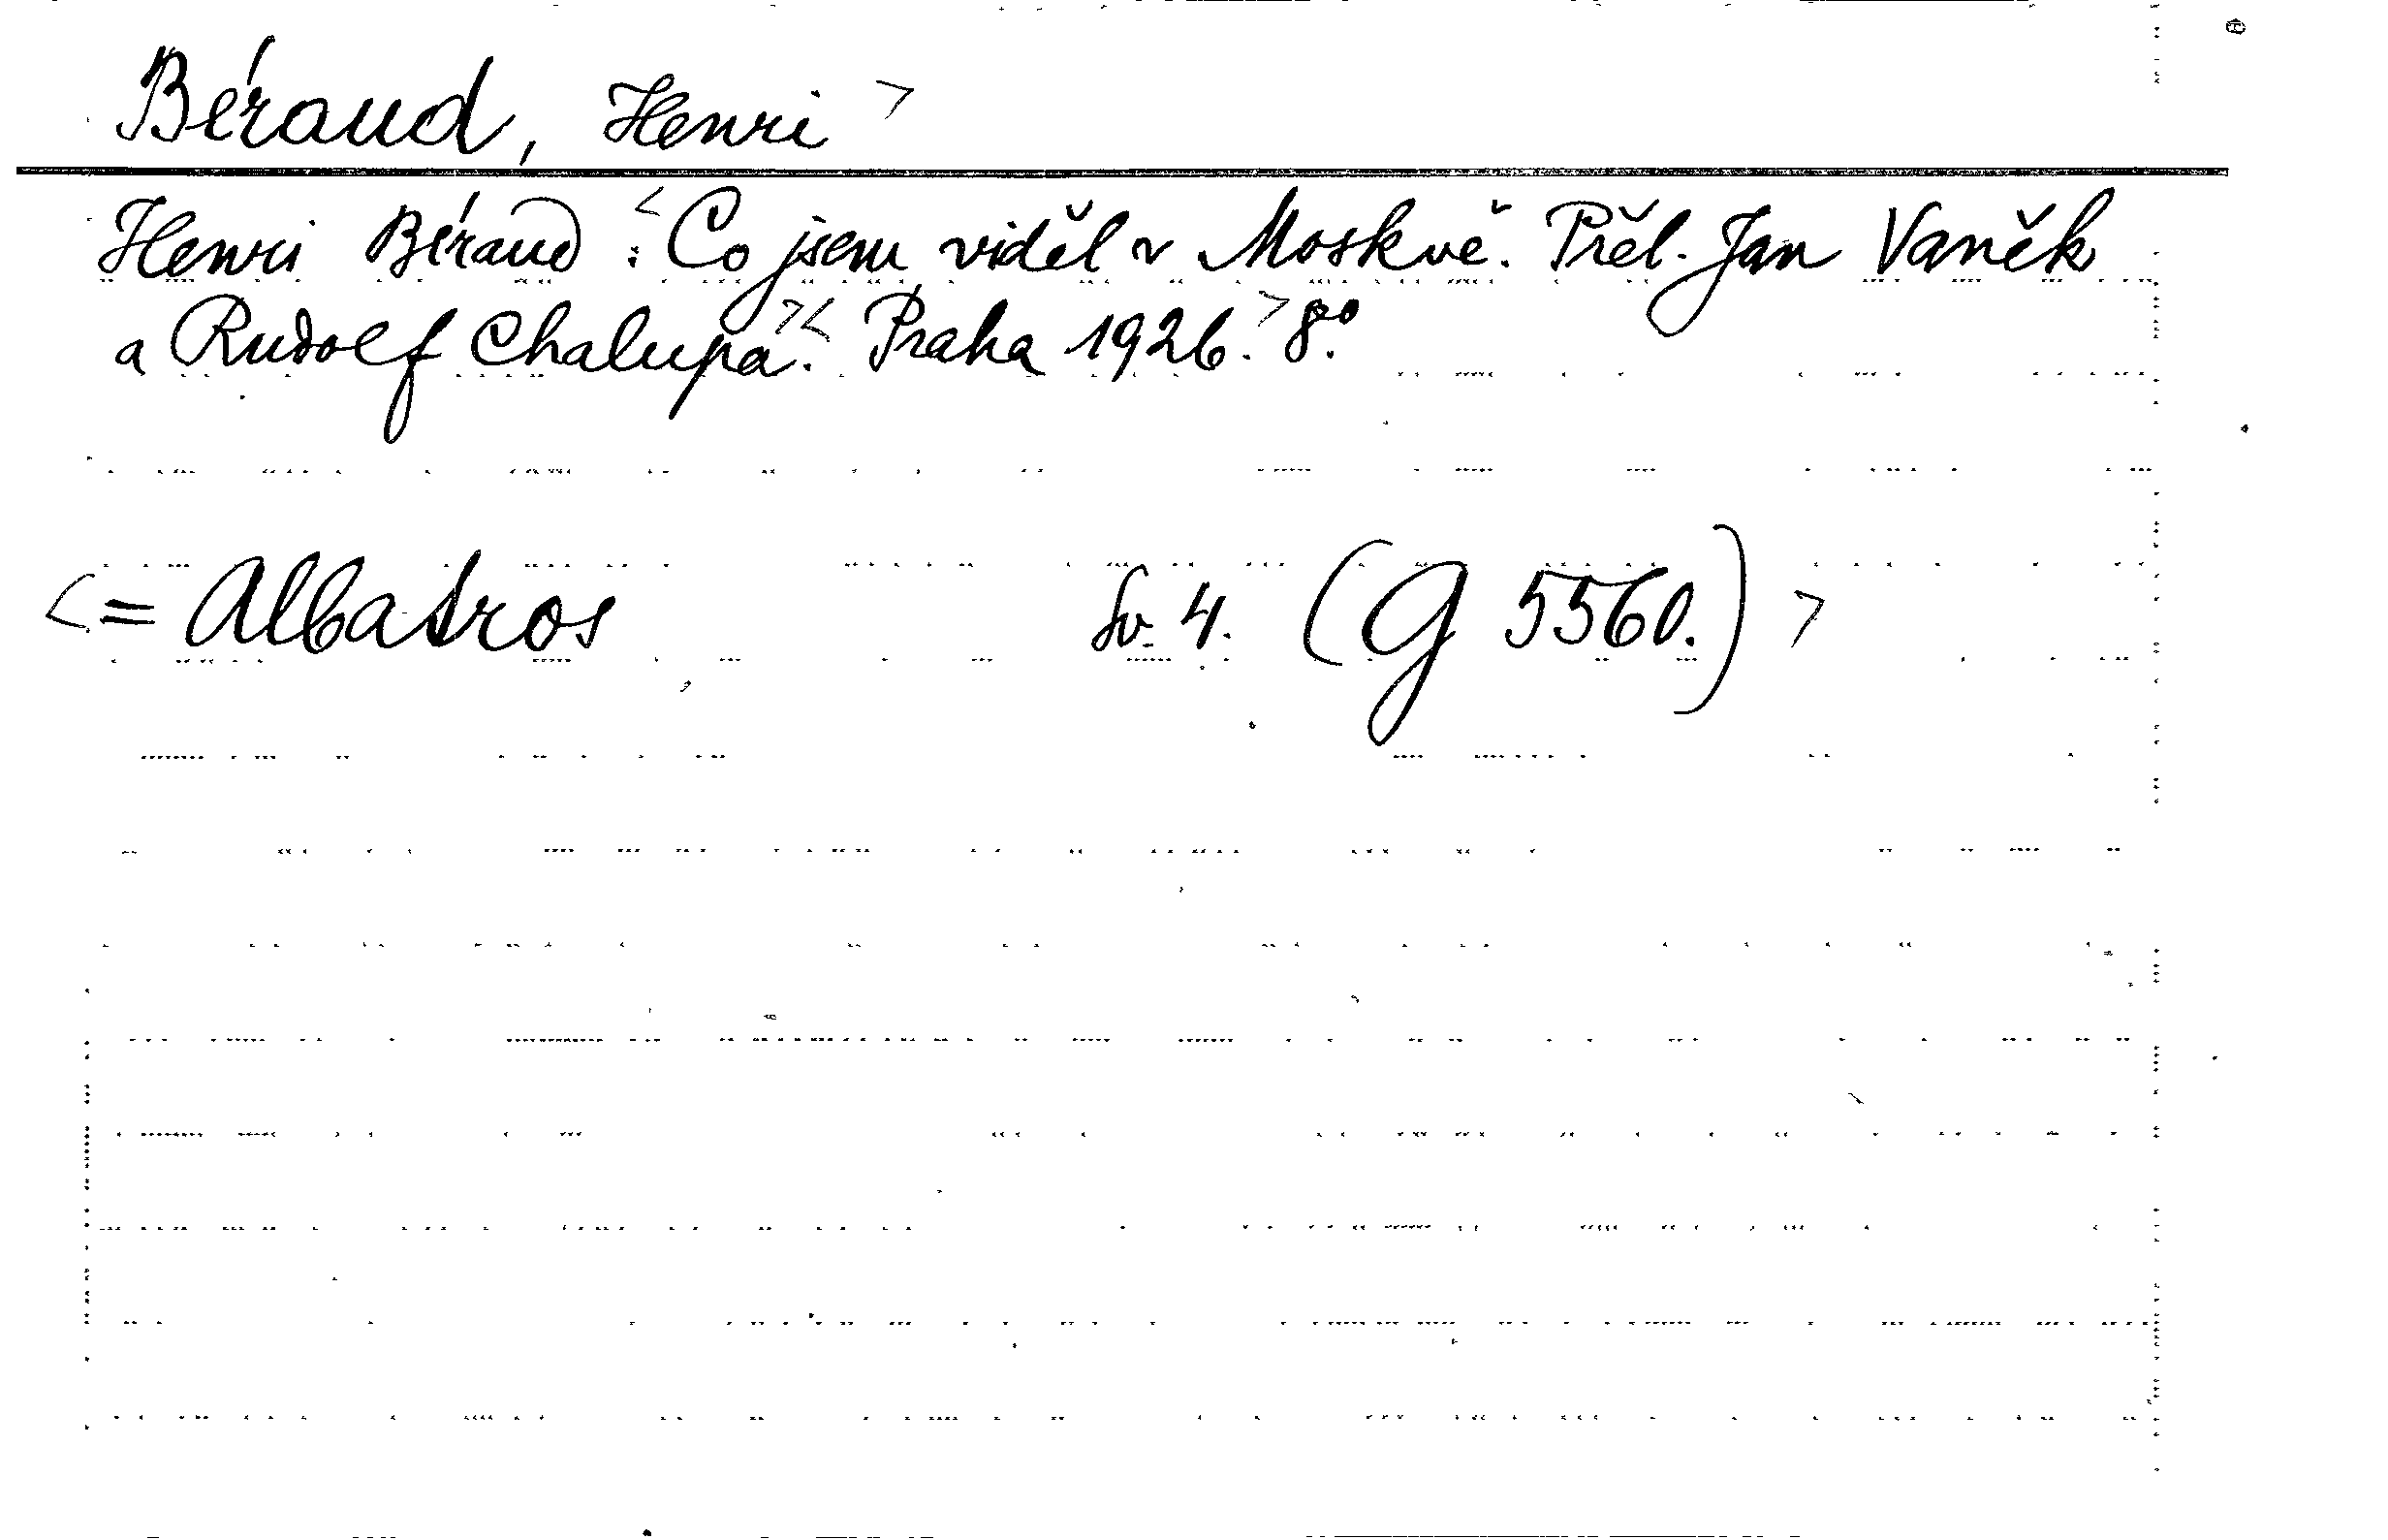 Béraud, Henri >
Henri Béraud : < Co jsem viděl v Moskvě. Přel. Jan Vaněk
a Rudolf Chalupa. >< Praha 1926. > 8°.
< = Albatros Sv. 4. (G 5560.) >